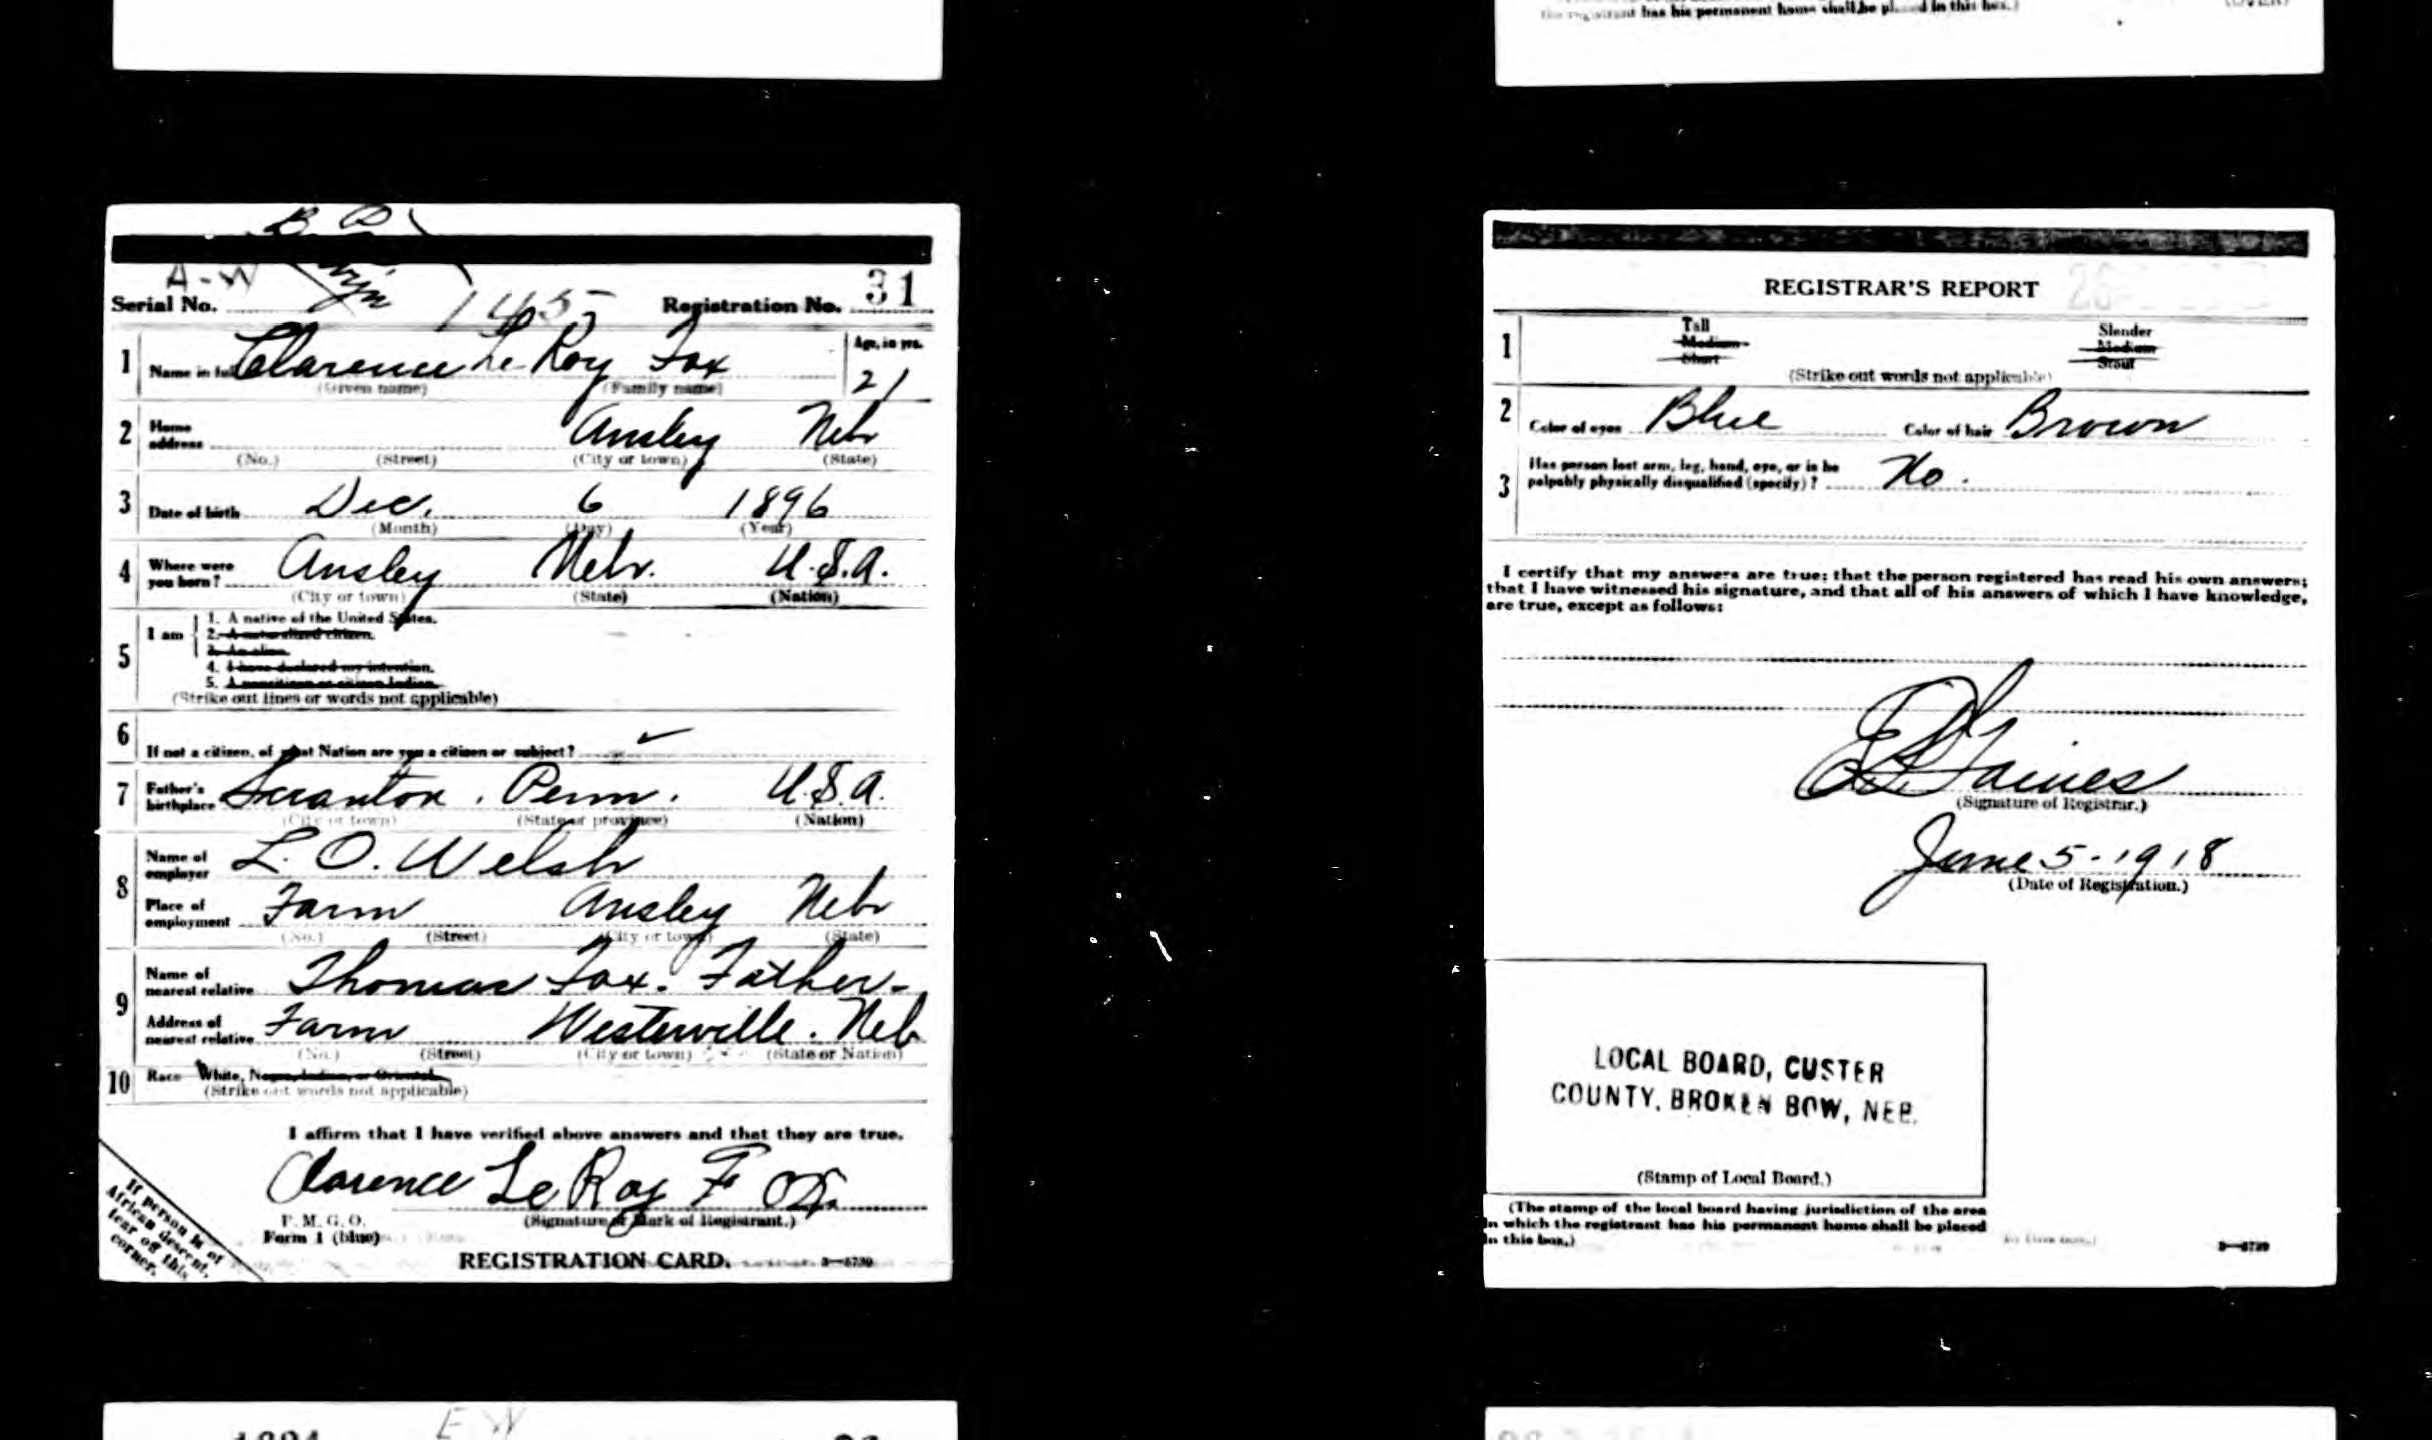 the registrant has his permanent home shall be placed in this box.)
(OVER)
A-W
Serial No. 145 Registration No. 31
1 Name in full Clarence Le Roy Fox Age, in yrs. 21
(Given name) (Family name)
2 Home address Ansley Nebr
(No.) (Street) (City or town) (State)
3 Date of birth Dec. 6 1896
(Month) (Day) (Year)
4 Where were you born? Ansley Nebr. U.S.A.
(City or town) (State) (Nation)
5 I am
1. A native of the United States.
2. A naturalized citizen.
3. An alien.
4. I have declared my intention.
5. A noncitizen or citizen Indian.
(Strike out lines or words not applicable)
6 If not a citizen, of what Nation are you a citizen or subject? ✓
7 Father's birthplace Scranton. Penn. U.S.A.
(City or town) (State or province) (Nation)
8 Name of employer L. O. Welsh
Place of employment Farm Ansley Nebr
(No.) (Street) (City or town) (State)
9 Name of nearest relative Thomas Fox. Father-
Address of nearest relative Farm Westerville. Neb
(No.) (Street) (City or town) (State or Nation)
10 Race White, Negro, Indian, or Oriental
(Strike out words not applicable)
I affirm that I have verified above answers and that they are true.
Clarence Le Roy Fox
(Signature or Mark of Registrant.)
P. M. G. O.
Form 1 (blue)
REGISTRATION CARD. 3—5739
If person is of
African descent,
tear off this
corner.
REGISTRAR'S REPORT
1 Tall Slender
Medium Medium
Short Stout
(Strike out words not applicable)
2 Color of eyes Blue Color of hair Brown
3 Has person lost arm, leg, hand, eye, or is he
palpably physically disqualified (specify)? No.
I certify that my answers are true; that the person registered has read his own answers;
that I have witnessed his signature, and that all of his answers of which I have knowledge,
are true, except as follows:
Gaines
(Signature of Registrar.)
June 5-1918
(Date of Registration.)
LOCAL BOARD, CUSTER
COUNTY, BROKEN BOW, NEB.
(Stamp of Local Board.)
(The stamp of the local board having jurisdiction of the area
in which the registrant has his permanent home shall be placed
in this box.)
3—5739
E W